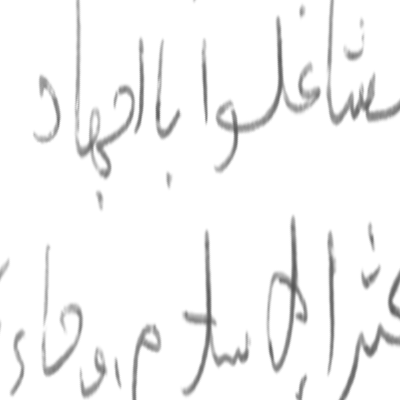 تشاغلوا بالجهاد
كثر الإسلام، وجاء